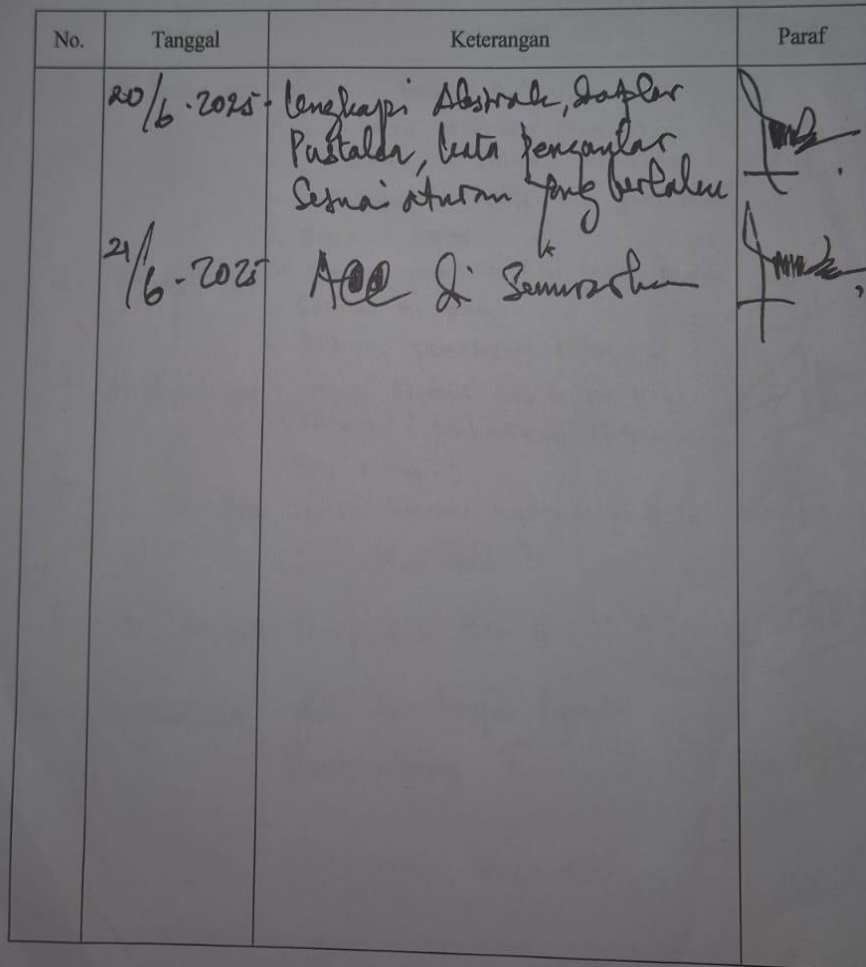 No. Tanggal Keterangan Paraf
20/6-2025- Lengkapi Abstrak, Daftar
Pustaka, kata pengantar
Sesuai aturan yang berlaku
21/6-2025 Acc di Seminarkan